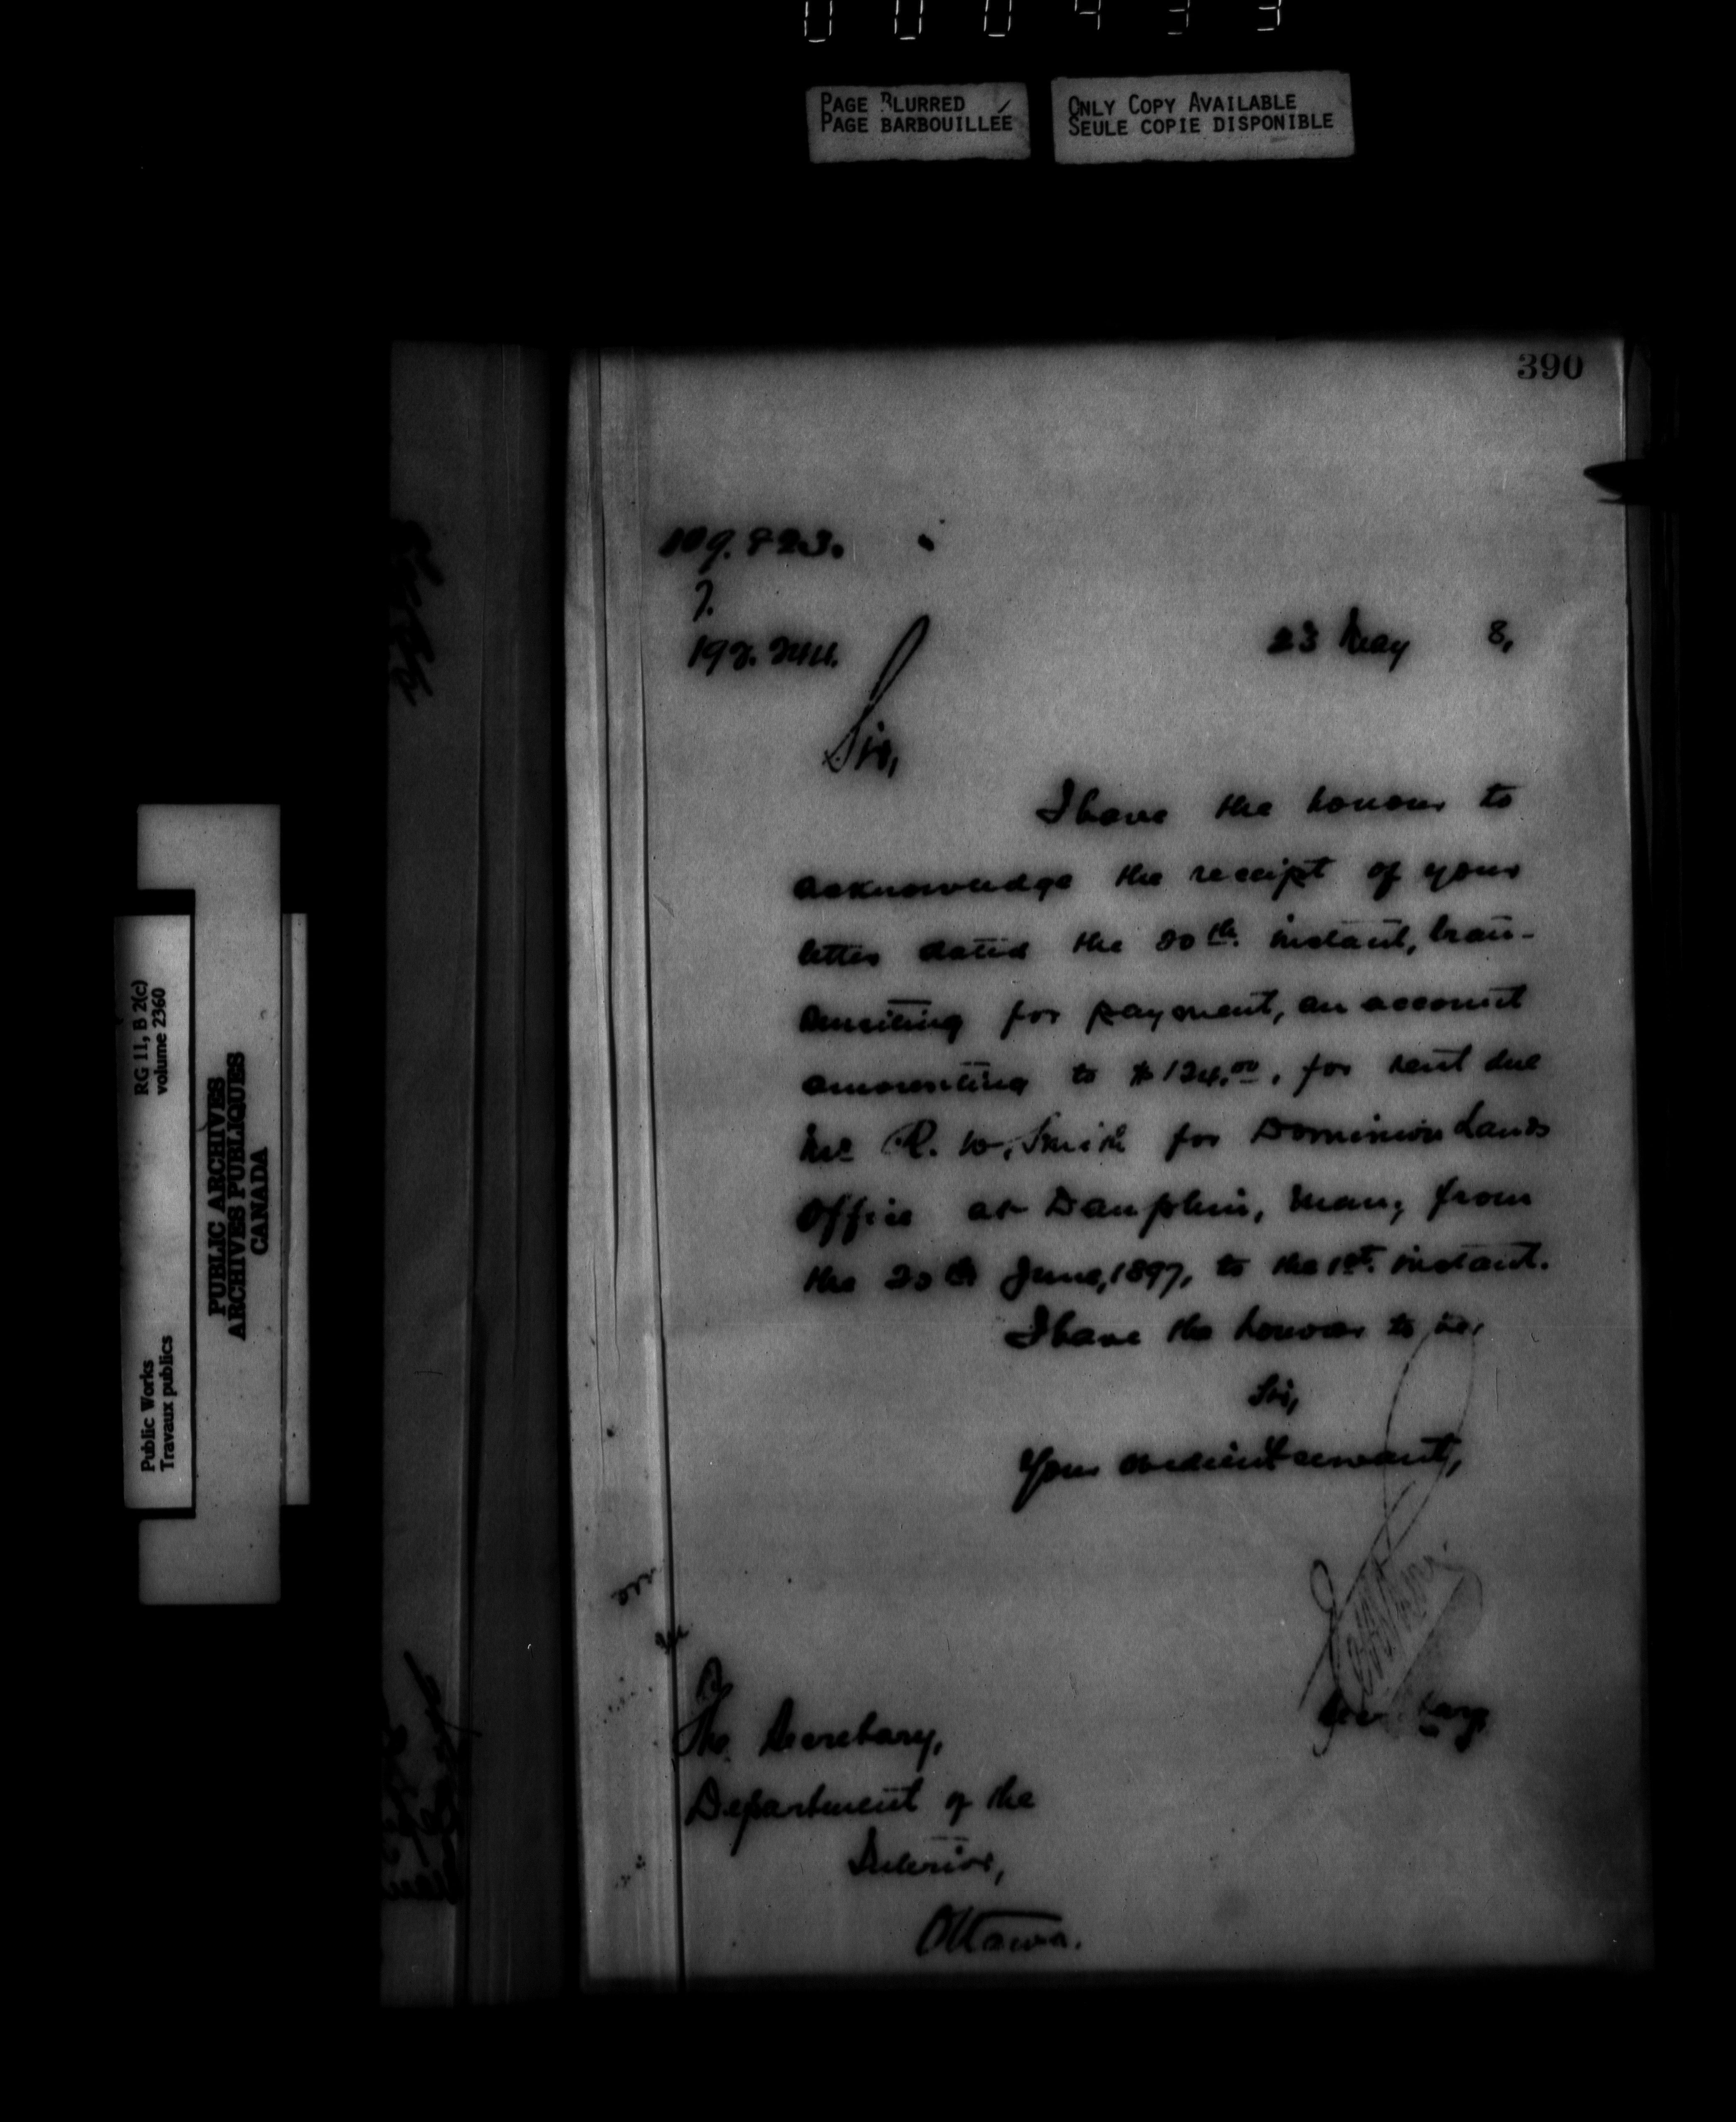 000433
PAGE BLURRED
PAGE BARBOUILLÉE
ONLY COPY AVAILABLE
SEULE COPIE DISPONIBLE
RG 11, B 2(c)
volume 2360
PUBLIC ARCHIVES
ARCHIVES PUBLIQUES
CANADA
Public Works
Travaux publics
390
23 May 8,
Sir,
I have the honour to
acknowledge the receipt of your
letter dated the 20th. instant, tran-
smitting for payment, an account
amounting to $124.00, for rent due
Mr R. W. Smith for Dominion Lands
Office at Dauphin, Man; from
the 20th June, 1897, to the 1st. instant.
I have the honour to be,
Sir,
Your obedient servant,
Secretary
The Secretary,
Department of the
Interior,
Ottawa.